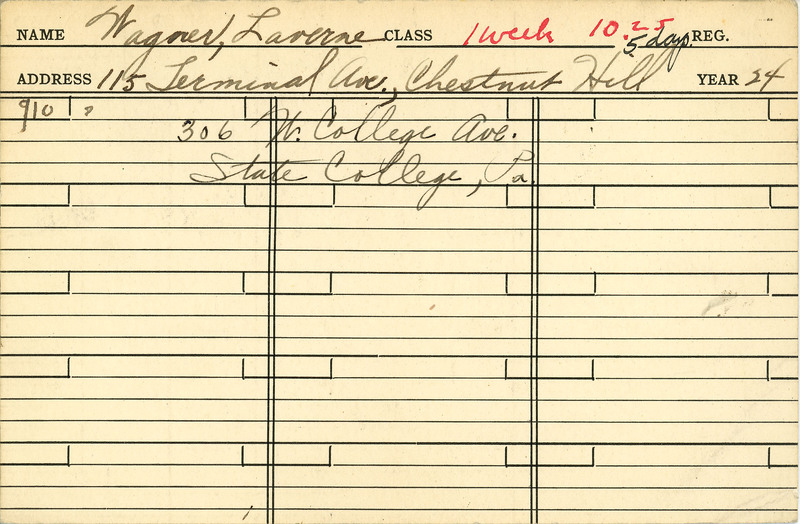 NAME Wagner, Laverne CLASS 1 week 10.25 5 days. REG.
ADDRESS 115 Terminal Ave., Chestnut Hill YEAR 24
9/10 ?
306 W. College Ave.
State College, Pa.